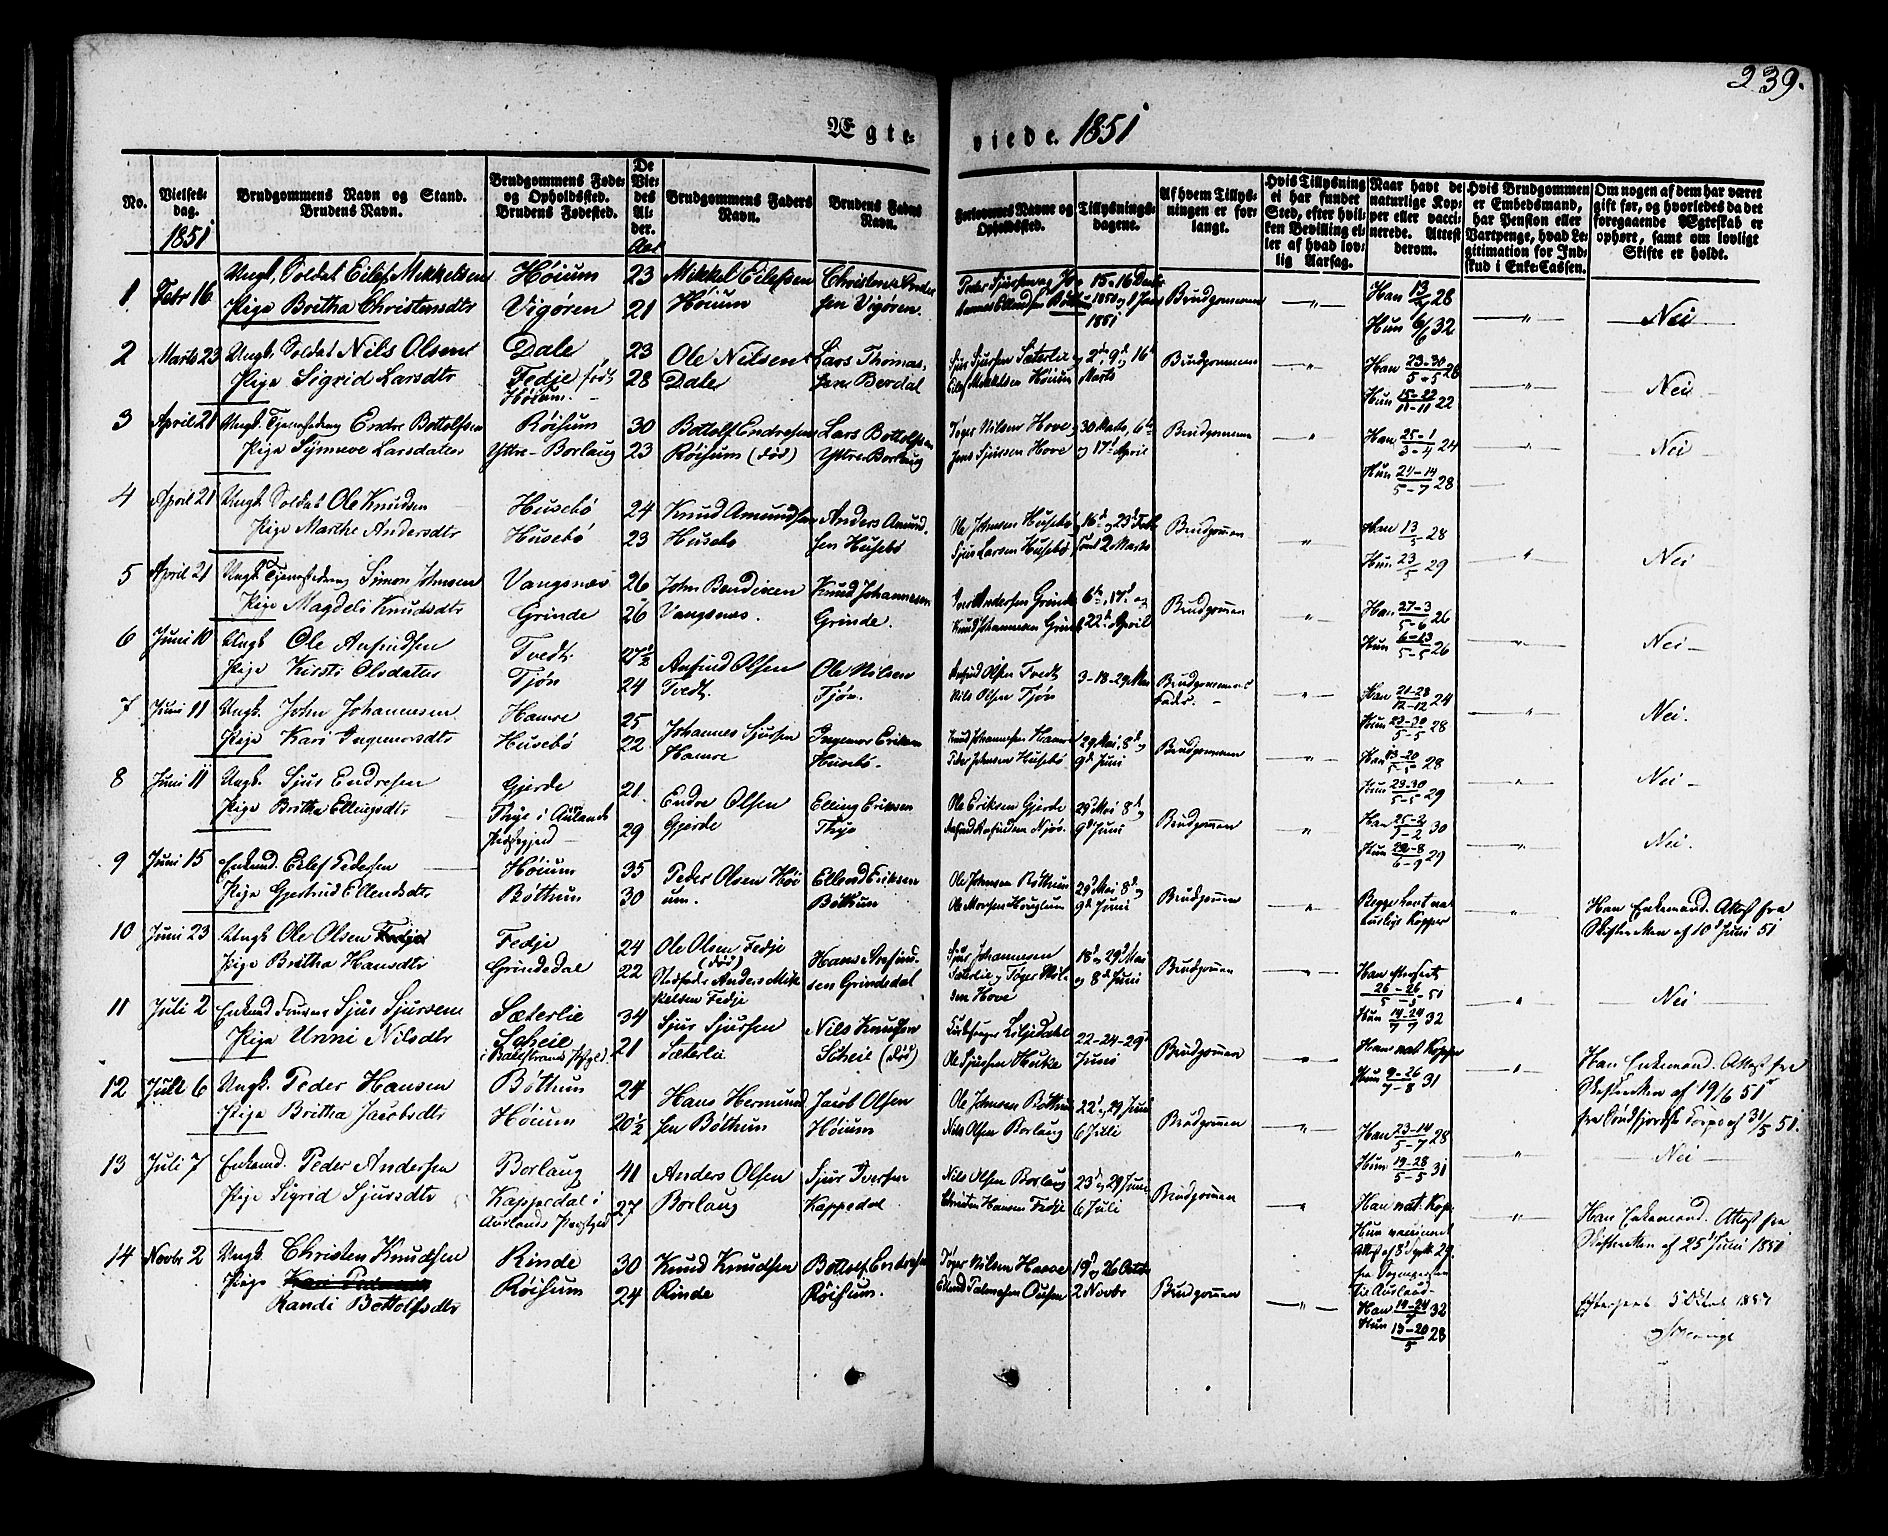 239.
Ægte- viede. 1851
No.
Vielses-
dag.
1851
Brudgommens Navn og Stand.
Brudens Navn.
Brudgommens Føde-
og Opholdssted.
Brudens Fødested.
De
Vie-
des
Al-
der.
Aar
Brudgommens Faders
Navn.
Brudens Faders
Navn.
Forlovernes Navne og
Opholdssted.
Tillysnings-
dagene.
Af hvem Tillys-
ningen er for-
langt.
Hvis Tillysning
ei har fundet
Sted, efter hvil-
ken Bevilling el-
ler af hvad lov-
lig Aarsag.
Naar havt de
naturlige Kop-
per eller vacci-
nerede. Attest
derom.
Hvis Brudgommen
er Embedsmand,
har Pension eller
Vartpenge, hvad Le-
gitimation for Ind-
skud i Enke-Cassen.
Om nogen af dem har været
gift før, og hvorledes da det
foregaaende Ægteskab er
ophørt, samt om lovligt
Skifte er holdt.
1 Febr 16 Ungk. Soldat Eilef Mikkelsen Høium 23 Mikkel Eilefsen Christen Ander 15-16 Decbr Brudgommen Han 13/2 28
Pige Britha Christensdtr Vigøren 21 Høium sen Vigøren. 1851 Hun 6/6 32 Nei
2 Marts 23 Ungk. Soldat Nils Olsen Dale 23 Ole Nilsen Lars Thomas- Sjur Sjursen Sæterlie 2d, 9d og 16d Brudgommen Han 23-30/5-5 28
Pige Sigrid Larsdtr Fedje født 28 Dale sen Berdal Eilef Mikkelsen Høium Marts Hun 15-22/11-11 22 Nei
Høium.
3 April 21 Ungk. Endre Bottolfsen Røisum 30 Bottolf Endresen Lars Bottolfsen Tøger Nilsen Hove 30 Marts, 6te Brudgommen Han 25-1/3-4 24
Pige Synneve Larsdatter Yttre-Borlaug 23 Røisum (død) Yttre Borlaug Jens Sjursen Hove og 17d April Hun 21-14/5-7 28 Nei
4 April 21 Ungk. Soldat Ole Knudsen Husebø 24 Knud Amundsen Anders Amund- Ole Johnsen Husebø 16d og 23d Febr Brudgommen Han 13/5 28
Pige Marthe Andersdtr Husebø 23 Husebø sen Husebø Sjur Larsen Husebø samt 2 Marts Hun 23/5 29 Nei
5 April 21 Ungk. Simon Johnsen Vangsnæs 26 John Bendixen Knud Johannesen Andersen Grinde 6te, 17d og Brudgommen Han 27-3/5-6 26
Pige Magdeli Knudsdtr Grinde 26 Vangsnæs. Grinde. Knud Johannesen Grinde 22d April Hun 6-13/5-5 26 Nei
6 Juni 10 Ungk Ole Anfindsen Tvedt 27½ Anfind Olsen Ole Nilsen Anfind Olsen Tvedt 3-18-29 Mai Brudgommens Han 21-28/12-12 24
Pige Kirsti Olsdatter Tjøn 24 Tvedt. Tjøn. Nils Olsen Tjøn Fader. Hun 23-30/5-5 28 Nei.
7 Juni 11 Ungk. John Johannesen Hamre 25 Johannes Sjursen Ingemor Eriksen Knud Johannesen Hamre 29 Mai, 8d og Brudgommen Han 13-20/5-5 28
Pige Kari Ingemorsdtr Husebø 22 Hamre Husebø. Peder Johnsen Husebø 9d Juni Hun 23-30/5-5 29 Nei
8 Juni 11 Ungk. Sjur Endresen Gjerde 21. Endre Olsen Elling Eriksen Ole Eriksen Gjerde 29 Mai 8d og Brudgommen Han 25-2/1-2 30
Pige Britha Ellingsdtr Thye i Aurlands 29 Gjerde Thye 9d Juni Hun 29-8/6-9 29 Nei.
Præstegjeld
9 Juni 15 Enkemd. Eilef Pedersen Høium 35 Peder Olsen Høi Ellend Eriksen Ole Johnsen Bøthum 29d Mai 8d og Brudgommen Begge havt na Han Enkemand. Attest fra
Pige Gjertrud Ellendsdtr Bøthum 30 um. Bøthum Ole Monsen Houglum 9d Juni turlige Kopper Skifteretten af 10d Juni 51
10 Juni 23 Ungk Ole Olsen Fedje Fedje 24 Ole Olsen Fedje Hans Anfind- Sjur Johannesen 18d og 29d Mai Brudgommen Han
Pige Britha Hansdtr Grindedal 22 (død) sen Grindedal Sæterlie og Tøger Nil- og 8d Juni 26-26/5-5 51 Nei
Anders Mik sen Hove Hun 14-24/7 7 32
kelsen Fedje
11 Juli 2 Enkemd Sjur Sjursen Sæterlie 34 Sjur Sjursen Nils Knudsen Liljedahl 22-24-29 Brudgommen Han nat Kopper Han Enkemand. Attest fra
Pige Unni Nilsdtr Scheie 21 Sæterlie Scheie (død) Ole Sjursen Juni Hun 9-26/7-8 31 Skifteretten af 19/6 51
i Balestrands Præstgjeld fra Søndfjordske Corps af 31/5 51.
12 Juli 6 Ungk. Peder Hansen Bøthum 24 Hans Hermund Jacob Olsen Ole Johnsen Bøthum 22d og 29 Juni Brudgommen Han 23-14/5-7 28
Pige Britha Jacobsdtr Høium 20½ sen Bøthum Høium Nils Olsen Borlaug 6 Juli Hun 19-28/5-5 31 Nei
13 Juli 7 Enkemd. Peder Andersen Borlaug 41 Anders Olsen Sjur Iversen Nils Olsen Borlaug 23d og 29 Juni Brudgommen Han nat. Kop. Han Enkemand. Attest fra
Pige Sigrid Sjursdtr Kappedal i 27 Borlaug Kappedal Christen Hansen Fedje 6 Juli Hun vaccineret Skifteretten af 25 Juni 1851
Aurlands Præstgjeld
14 Novbr 2 Ungk. Christen Knudsen Rinde 30 Knud Knudsen Bottolf Endresen Tøger Nilsen Hove 19d og 26 Octbr Brudgommen
Pige Røisum 24 Rinde Røisum. 2 Novbr Han 14-24/7 32
Randi Bottolfsdtr Hun 13-20/5 28